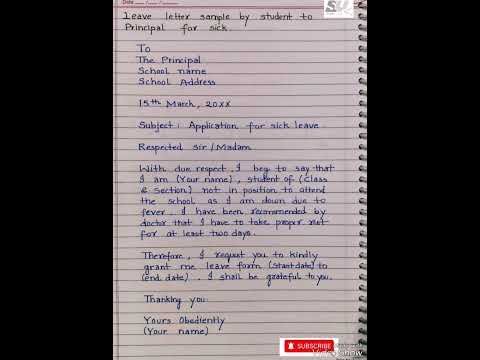 Date
Leave letter sample by student to
Principal for sick.
To
The Principal
School name
School Address
15th March, 20XX
Subject: Application for sick leave.
Respected Sir/Madam
With due respect, I beg to say that
I am (Your name), student of (Class
& Section) not in position to attend
the school as I am down due to
fever. I have been recommended by
doctor that I have to take proper rest
for at least two days.
Therefore, I request you to kindly
grant me leave form (Start date) to
(end date). I shall be grateful to you.
Thanking you.
Yours Obediently
(Your name)
SUBSCRIBE